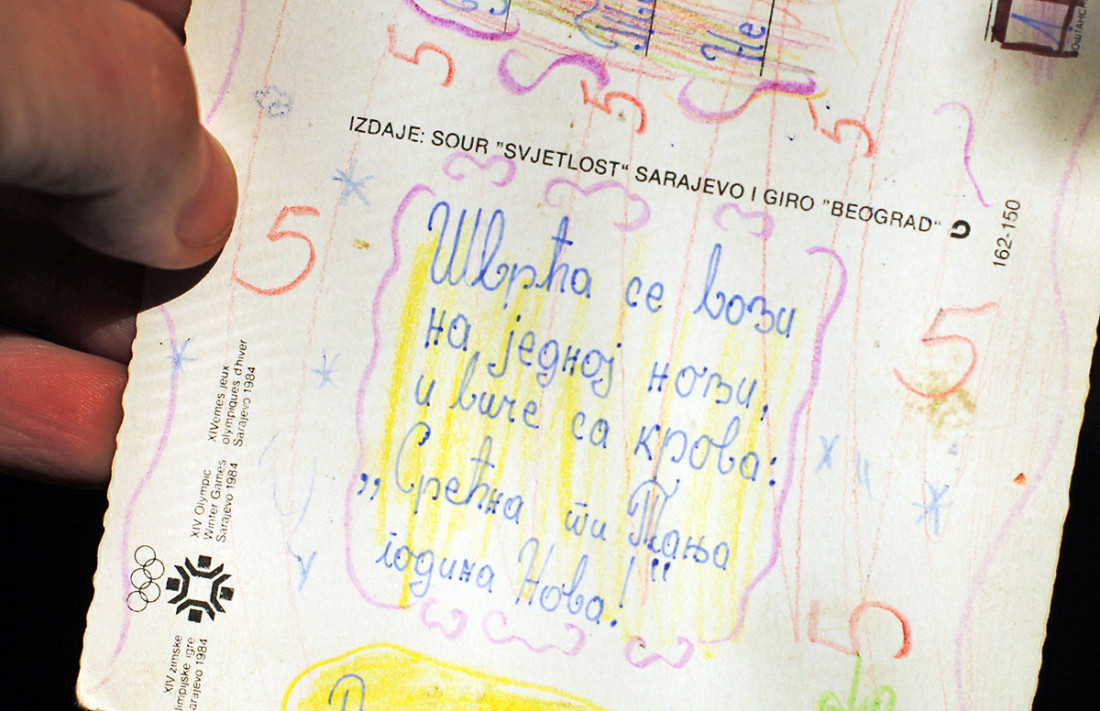 Не
5
5
5
IZDAJE: SOUR "SVJETLOST" SARAJEVO I GIRO "BEOGRAD"
162-150
5
5
Шврћа се вози
на једној нози,
и виче са крова:
„Срећна ти Тања
година Нова!"
5
XIVemes jeux
olympiques d'hiver
Sarajevo 1984
XIV Olympic
Winter Games
Sarajevo 1984
XIV zimske
limpijske igre
arajevo 1984